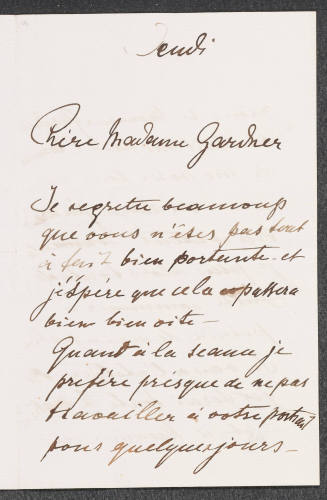 Jeudi
Chère Madame Gardner
Je regrette beaucoup
que vous n'êtes pas tout
à fait bien portante et
j'espère que cela passera
bien bien vite –
Quand à la seance je
prefére presque de ne pas
travailler à votre portrait
pous quelques jours –